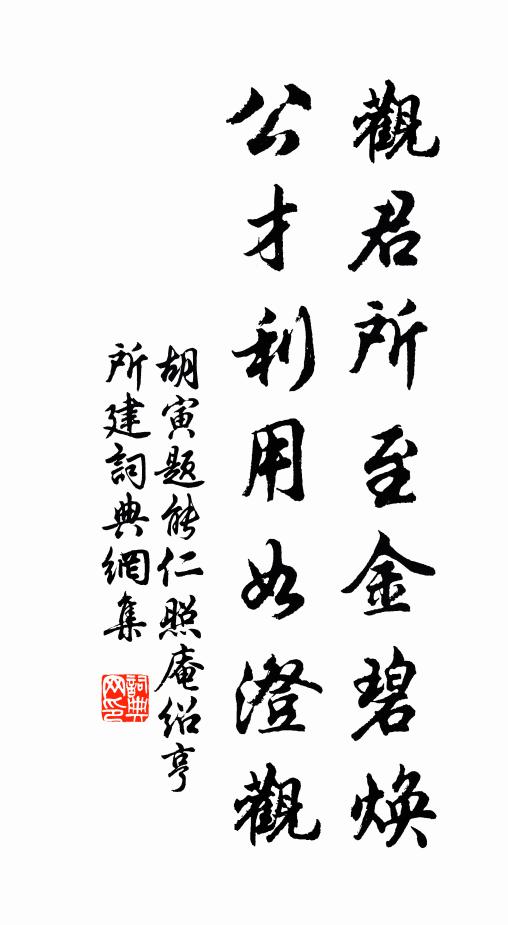 觀君所至金碧煥
公才利用如澄觀
胡寅题能仁照庵绍亨
所建詞典網集
詞典
网印